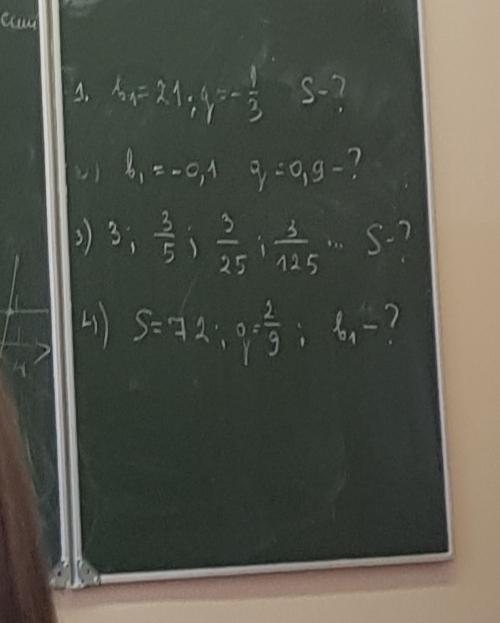 1. b₁=21; q=-1/3 S-?
2) b₁=-0,1 q=0,9-?
3) 3; 3/5; 3/25; 3/125 ... S-?
4) S=72; q=2/9; b₁-?